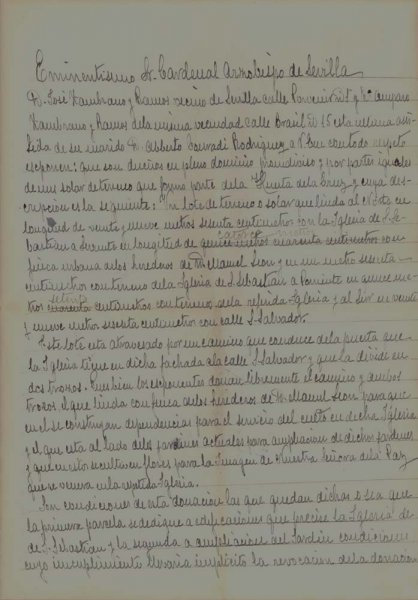 Eminentisimo Sr. Cardenal Arzobispo de Sevilla
D. José Zambrano y Ramos vecino de Sevilla calle Porvenir nº 1 y Dª Amparo
Zambrano y Ramos de la misma vecindad, calle Brasil nº 15 esta ultima asis-
tida de su marido D. Alberto Rodriguez, a V. Emª con todo respeto
exponen: que son dueños en pleno dominio proindiviso y por partes iguales
de un solar de terreno que forma parte de la Huerta de la Cruz y cuya des-
cripcion es la siguiente: Un lote de terreno o solar que linda al Norte en
longitud de veinte y nueve metros sesenta centimetros con la Iglesia de S. Se-
bastian a Levante en longitud de metros cuarenta centimetros con
finca urbana de los herederos de D. Manuel Leon y en un metro sesenta
centimetros con terreno de la Iglesia de S. Sebastian a Poniente en once me-
tros setenta centimetros con terreno de la referida Iglesia y al Sur en veinte
y nueve metros sesenta centimetros con calle S. Salvador.
Este lote esta atravesado por un camino que conduce de la puerta que
la Iglesia tiene en dicha fachada a la calle S. Salvador y que la divide en
dos trozos. Pues bien los exponentes donan libremente el camino y ambos
trozos el que linda con finca de los herederos de D. Manuel Leon para que
en el se construyan dependencias para el servicio del culto en dicha Iglesia
y el que esta al lado de los jardines actuales para ampliacion de dichos jardines
y que en esto se cultiven flores para la Imagen de Nuestra Señora de la Paz
que se venera en la repetida Iglesia.
Son condiciones de esta donacion las que quedan dichas o sea que
la primera parcela se dedique a edificaciones que precise la Iglesia de
de S. Sebastian y la segunda a ampliacion del Jardin condiciones
cuyo incumplimiento llevaria implicito la revocacion de la donacion